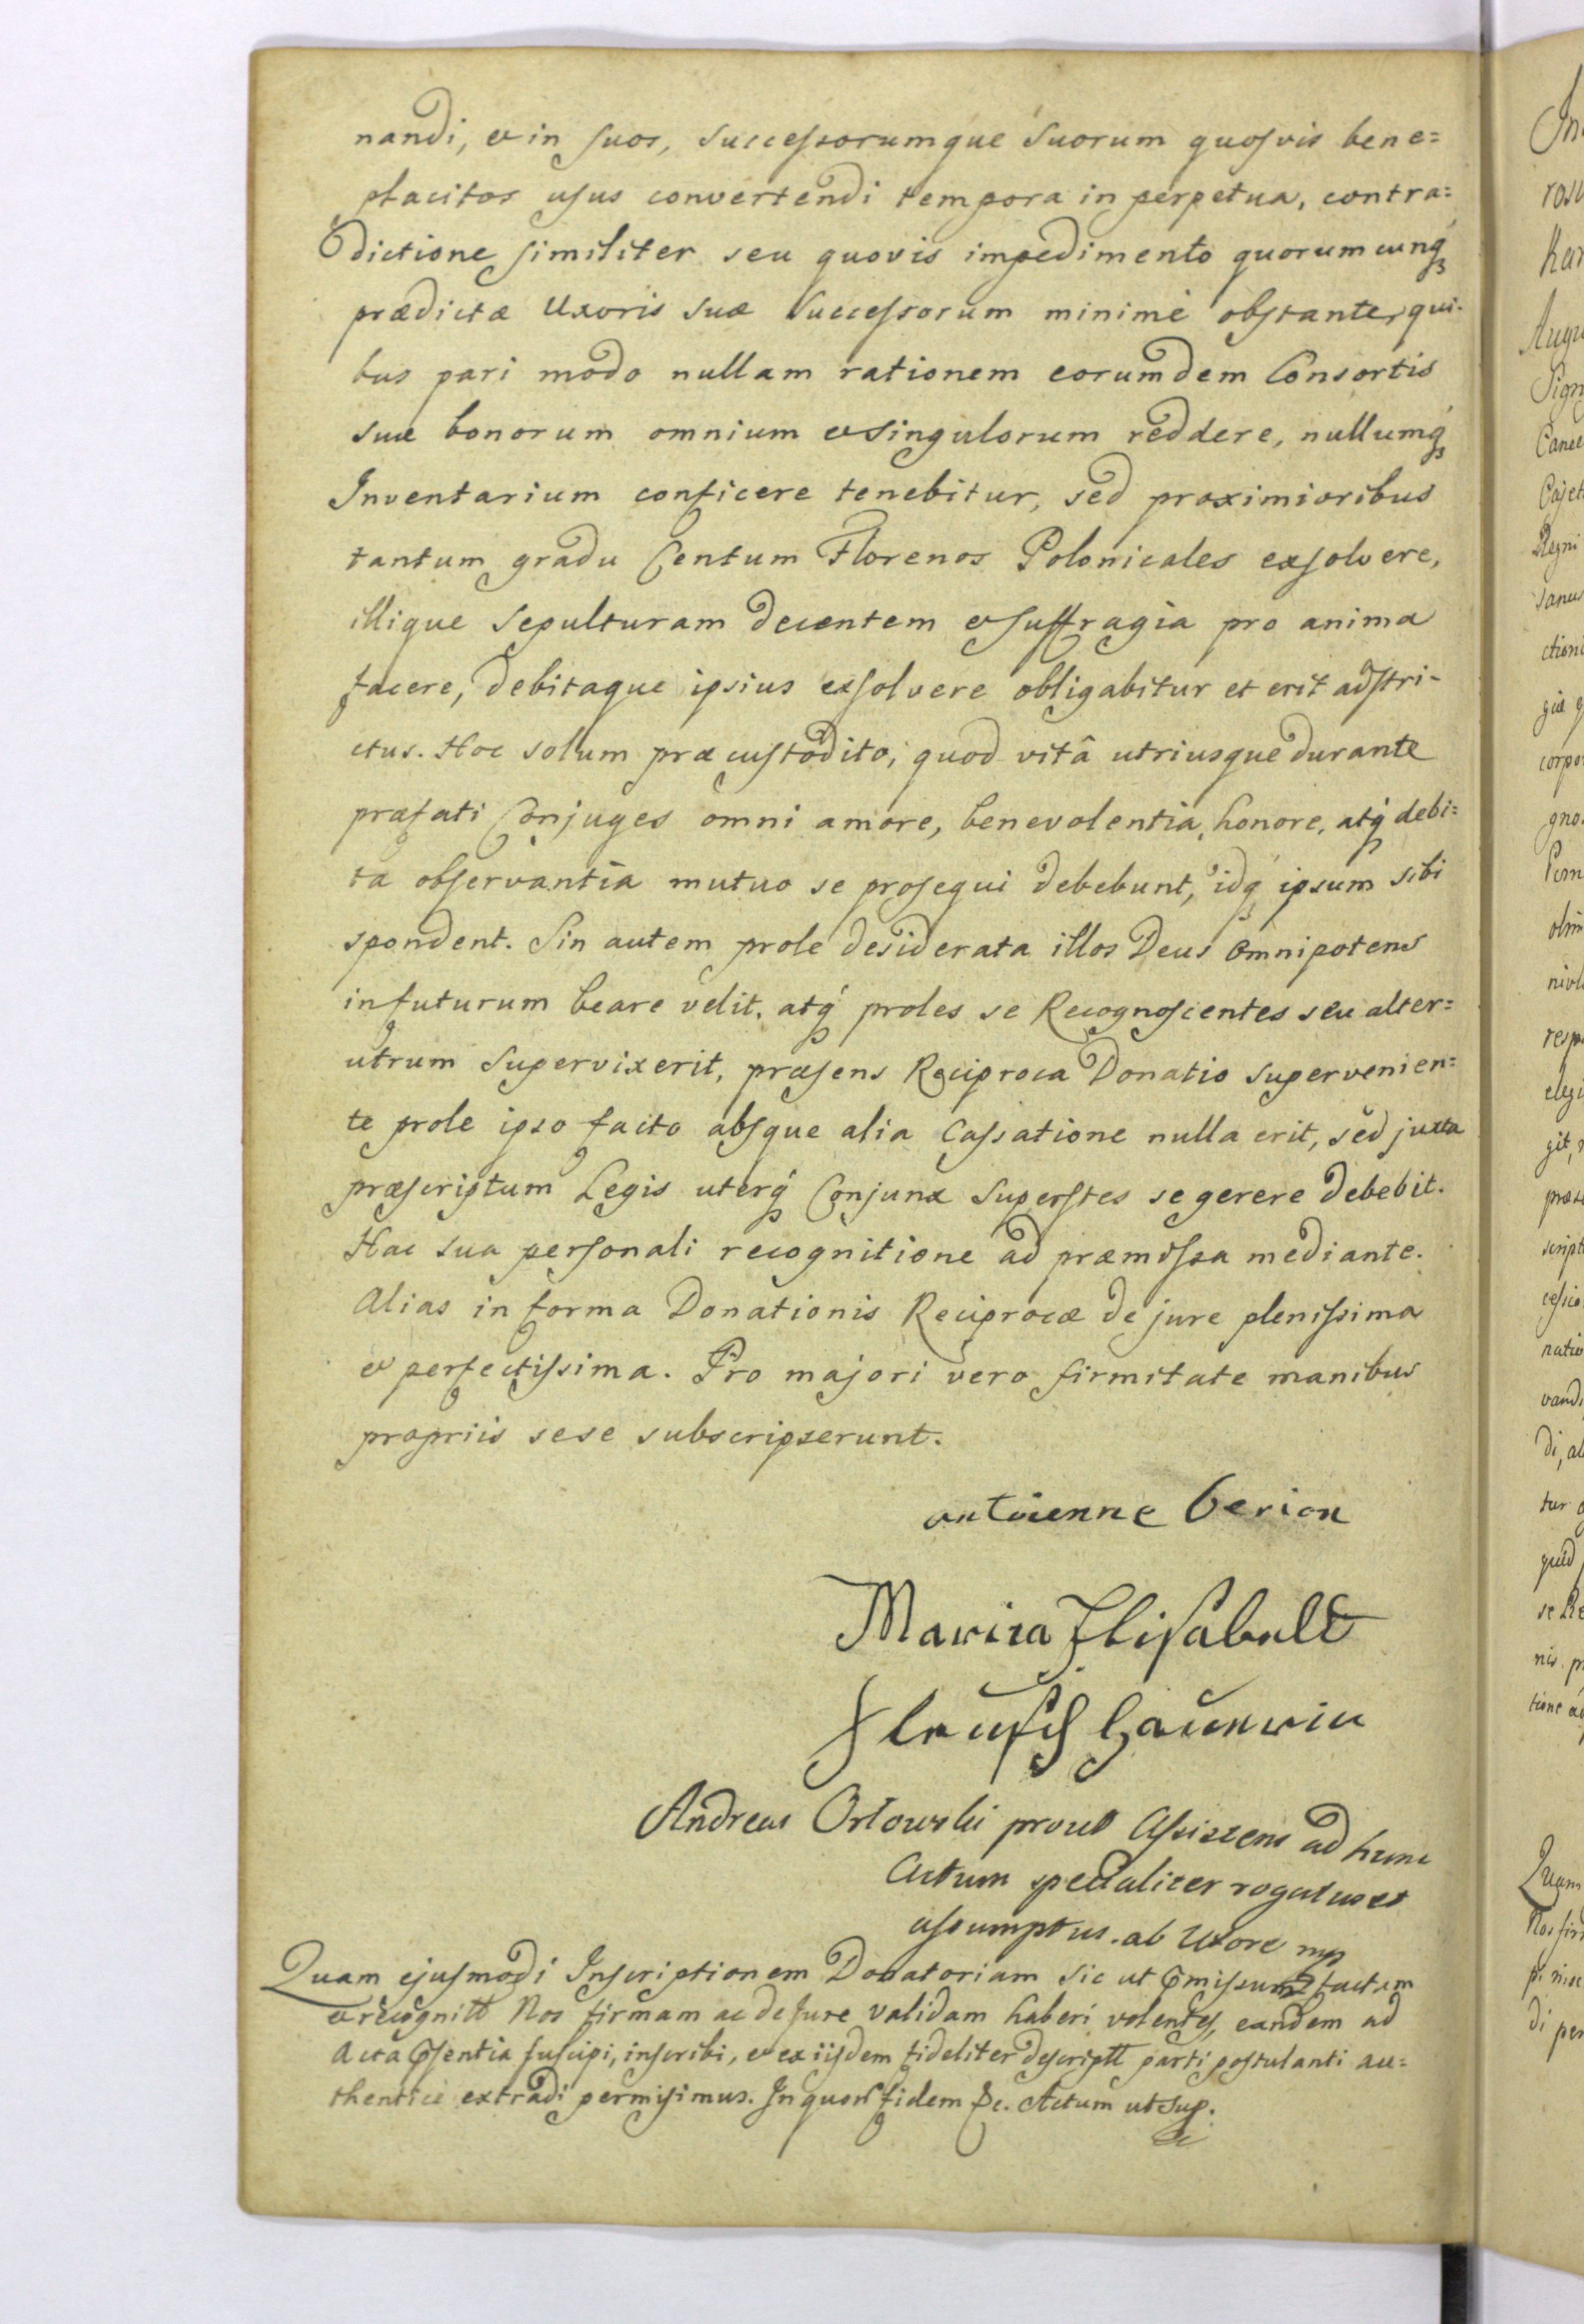 nandi, & in suos, Successorumque Suorum quosvis bene=
placitos usus convertendi tempora in perpetua, contra=
dictione similiter seu quovis impedimento quorumcunq́
prædictæ Uxoris Suæ Successorum minimè obstante, qui-
bus pari modo nullam rationem eorumdem Consortis
suæ bonorum omnium & Singulorum reddere, nullumq́
Inventarium conficere tenebitur, sed proximioribus
tantum gradu Centum Florenos Polonicales exsolvere,
illique Sepulturam decentem & suffragia pro anima
facere, debitaque ipsius exsolvere obligabitur et erit adstri-
ctus. Hoc solum præcustodito, quod vitâ utriusque durante
præfati Conjuges omni amore, benevolentia, honore, atq́ debi=
ta observantia mutuo se prosequi debebunt, idq́ ipsum sibi
spondent. Sin autem prole desiderata illos Deus Omnipotens
in futurum beare velit, atq́ proles se Recognoscentes seu alter=
utrum Supervixerit, præsens Reciproca Donatio supervenien=
te prole ipso facto absque alia Cassatione nulla erit, sed juxta
præscriptum Legis uterq́ Conjunx Superstes se gerere debebit.
Hac sua personali recognitione ad præmissa mediante.
Alias in forma Donationis Reciprocæ de jure plenissima
& perfectissima. Pro majori vero firmitate manibus
propriis sese subscripserunt.
antoienne Berion
Maria Elisabett
Andreas Orłowski prout Assistens ad hunc
Actum specialiter rogatus et
assumptus ab Uxore mp
Quam ejusmodi Inscriptionem Donatoriam sic ut pmissum factam
& recognitt Nos firmam ac de Jure validam haberi volentes, eandem ad
Acta psentia suscipi, inscribi, & ex iisdem fideliter descriptt parti postulanti au=
thentice extradi permisimus. In quor fidem &c. Actum ut sup.